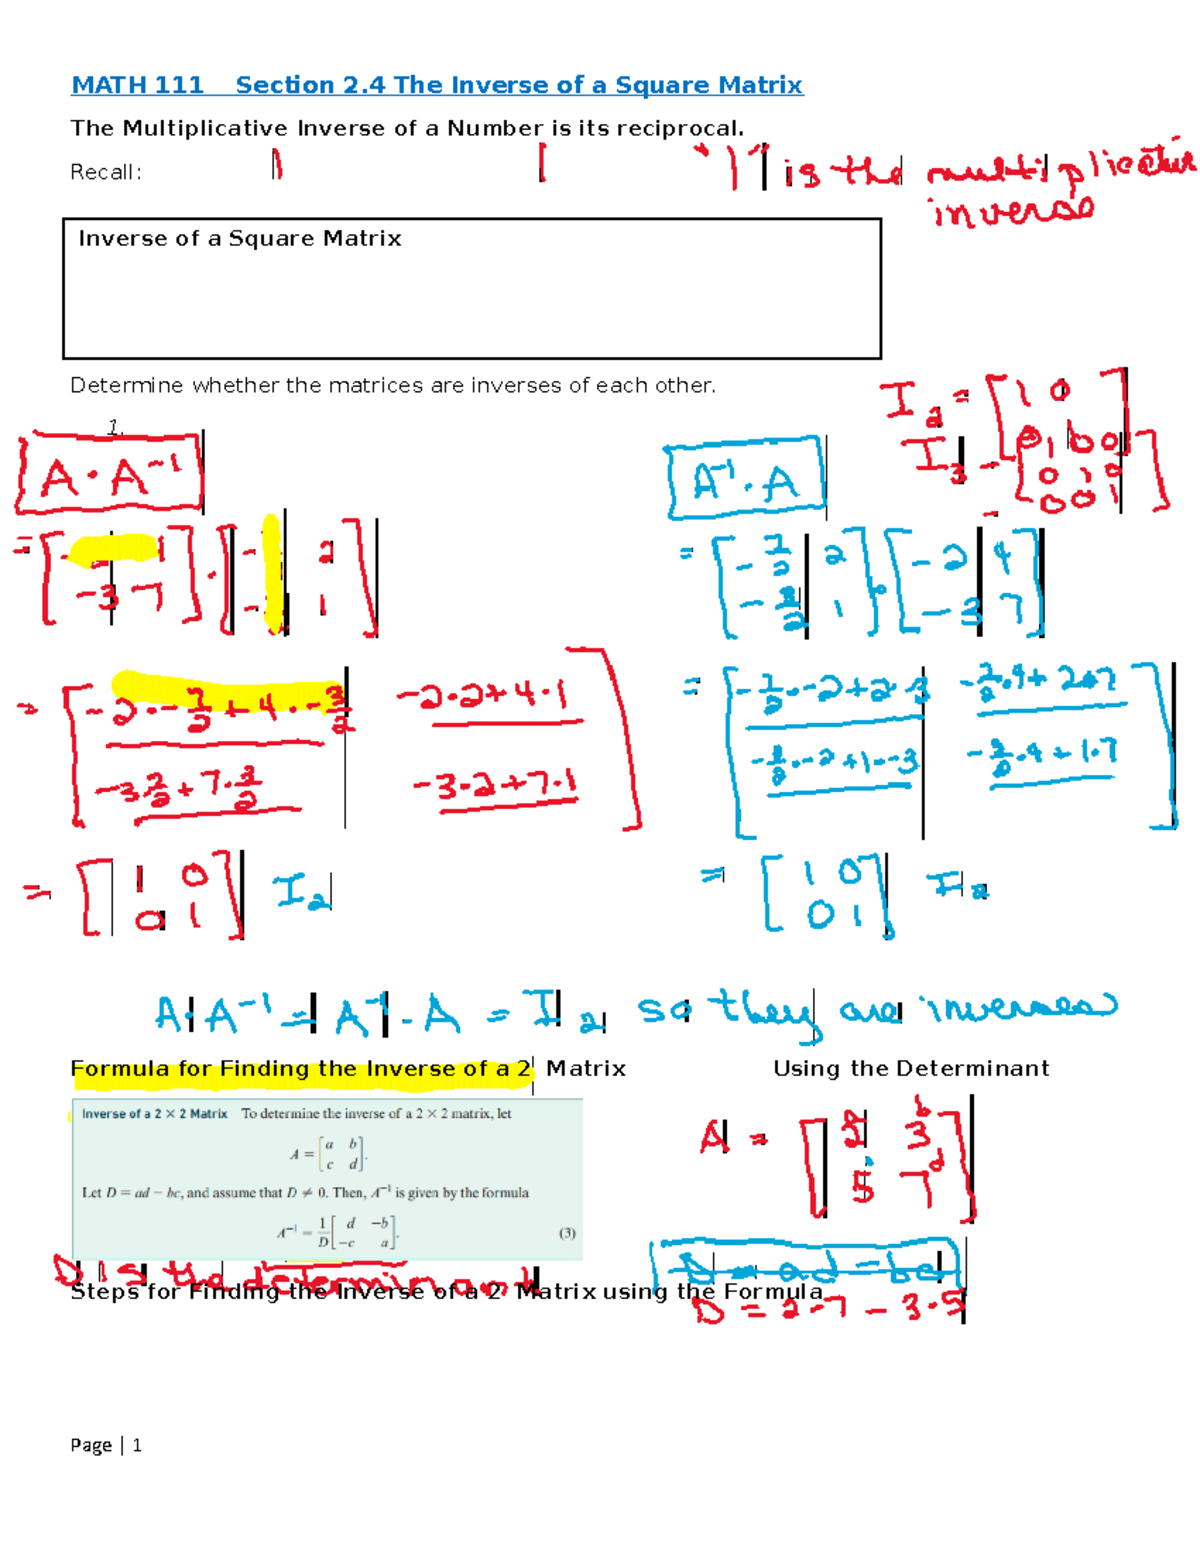 MATH 111 Section 2.4 The Inverse of a Square Matrix
The Multiplicative Inverse of a Number is its reciprocal.
Recall:
"1" is the multiplicative
inverse
Inverse of a Square Matrix
Determine whether the matrices are inverses of each other.
1.
I₂ = [1 0
0 1]
I₃ = [1 0 0
0 1 0
0 0 1]
A · A⁻¹
A⁻¹ · A
= [-7/2 2
-3/2 1] · [-2 4
-3 7]
-2·-7/2 + 4·-3/2 -2·2+4·1
-3·2+7·1
= [-7/2·-2+2·-3 -7/2·4+2·7
-3/2·-2+1·-3 -3/2·4+1·7]
= [1 0
0 1] I₂
= [1 0
0 1] I₂
A·A⁻¹ = A⁻¹·A = I₂ so they are inverses
Formula for Finding the Inverse of a 2 Matrix Using the Determinant
Inverse of a 2 × 2 Matrix To determine the inverse of a 2 × 2 matrix, let
A = [a b
c d].
Let D = ad − bc, and assume that D ≠ 0. Then, A⁻¹ is given by the formula
A⁻¹ = 1/D [d −b
−c a]. (3)
A = [2 3
5 7]
D is the determinant
D = ad - bc
Steps for Finding the Inverse of a 2 Matrix using the Formula
D = 2·7 - 3·5
Page | 1